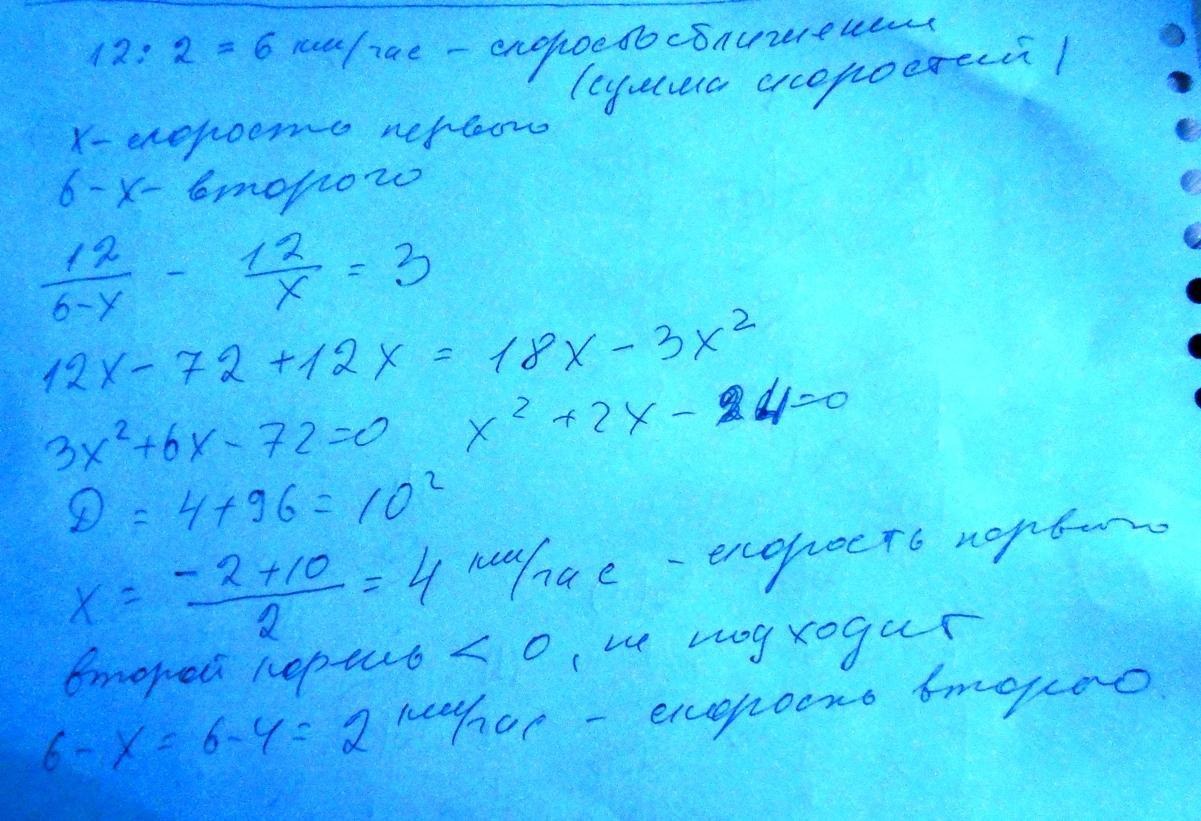 12 : 2 = 6 км/час - скорость сближения
(сумма скоростей)
x - скорость первого
6 - x - второго
12/(6-x) - 12/x = 3
12x - 72 + 12x = 18x - 3x²
3x² + 6x - 72 = 0 x² + 2x - 24 = 0
D = 4 + 96 = 10²
x = (-2+10)/2 = 4 км/час - скорость первого
второй корень < 0, не подходит
6 - x = 6 - 4 = 2 км/час - скорость второго